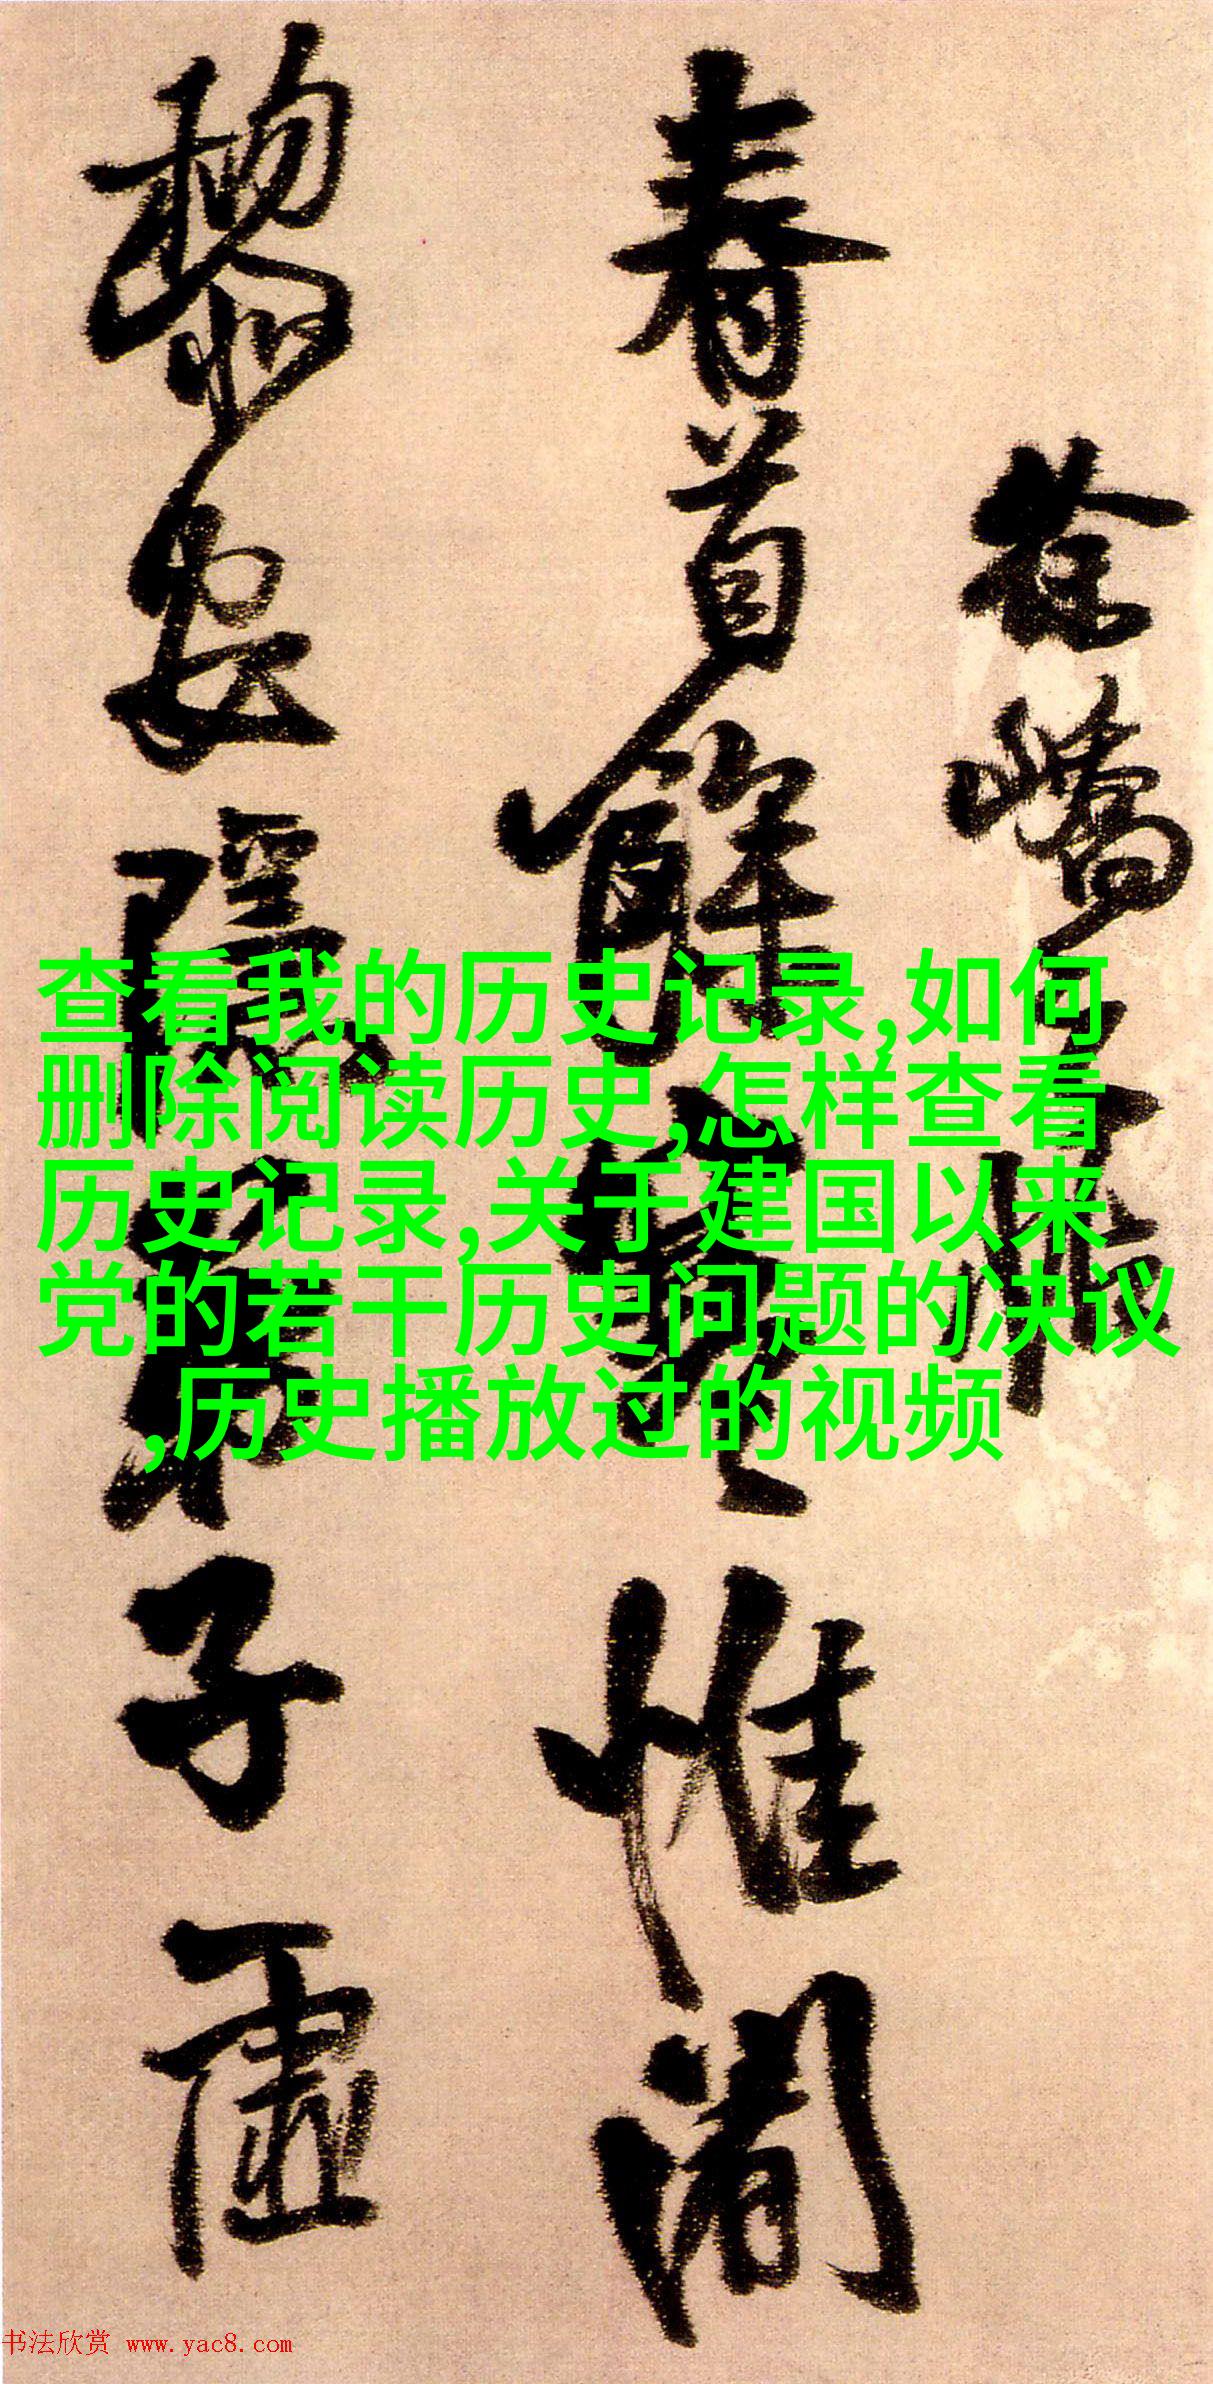 徐嶠之
春首餘寒惟闍
黎安隱弟子虛
查看我的历史记录,如何
删除阅读历史,怎样查看
历史记录,关于建国以来
党的若干历史问题的决议
,历史播放过的视频
书法欣赏 www.yac8.com